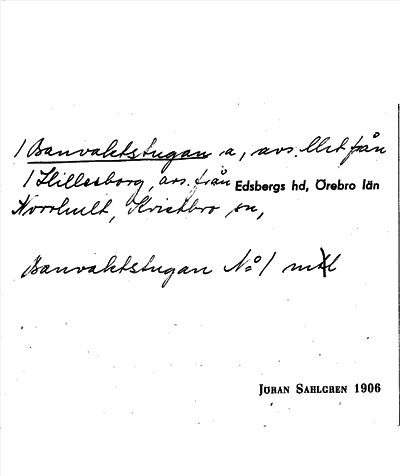 1 Banvaktstugan a, avs. Ulet från
1 Hillesborg, avs. från Edsbergs hd, Örebro län
Norrhult, Kvistbro sn,
Banvaktstugan No 1
JÖRAN SAHLGREN 1906